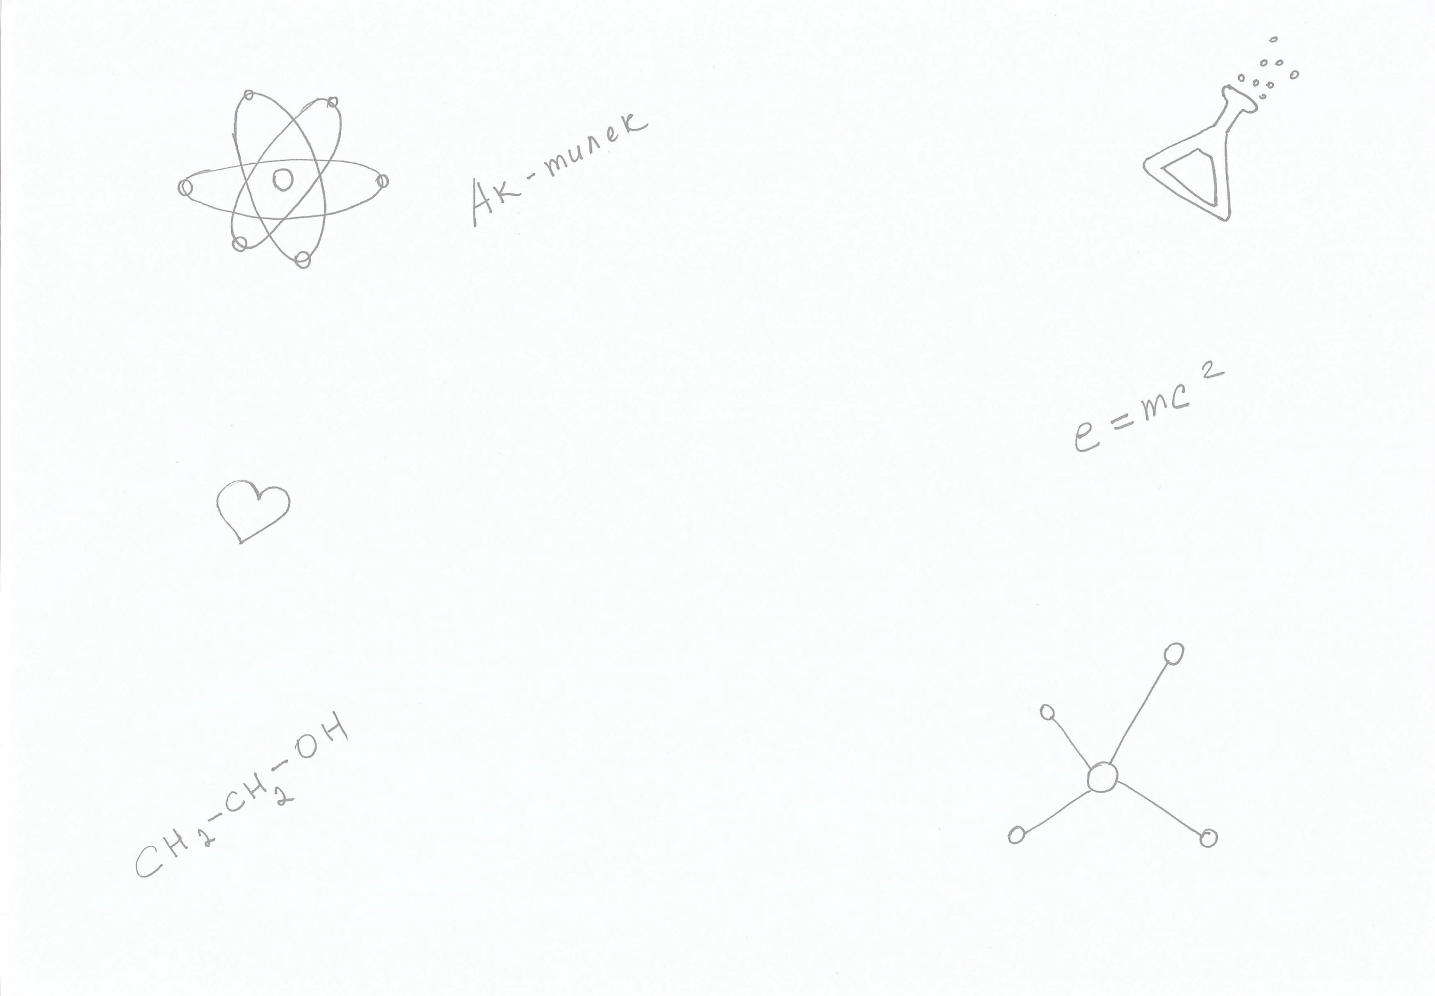 Ак-тилек
e=mc²
CH₂-CH₂-OH